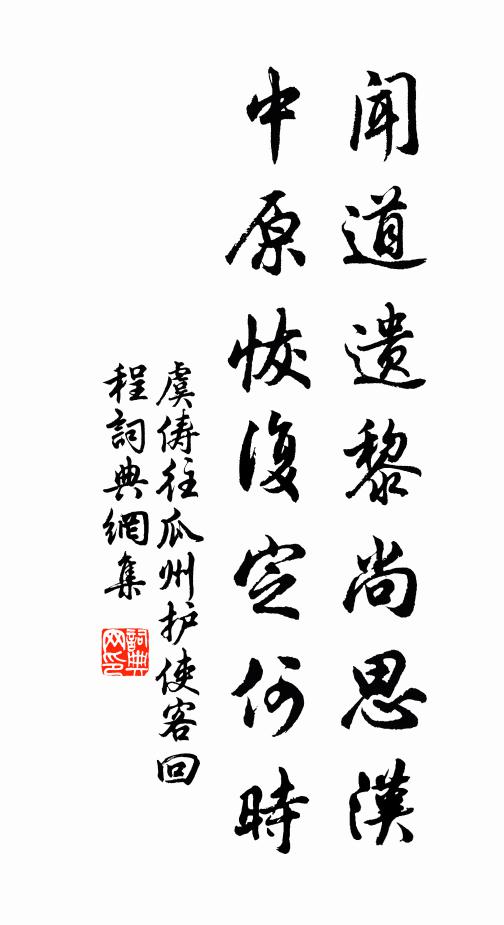 聞道遺黎尚思漢
中原恢復定何時
虞俦往瓜州护使客回
程詞典網集
詞典
网印